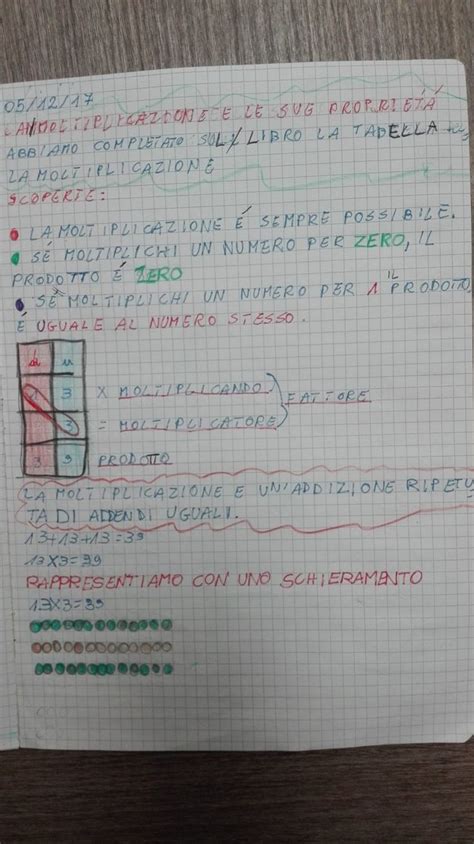 05/12/17
LA MOLTIPLICAZIONE E LE SUE PROPRIETÁ
ABBIAMO COMPLETATO SUL LIBRO LA TABELLA
LA MOLTIPLICAZIONE
SCOPERTE:
LA MOLTIPLICAZIONE É SEMPRE POSSIBILE.
SÉ MOLTIPLICHI UN NUMERO PER ZERO, IL
PRODOTTO É ZERO
SÉ MOLTIPLICHI UN NUMERO PER 1 IL PRODOTTO,
É UGUALE AL NUMERO STESSO.
da u
1 3 X MOLTIPLICANDO FATTORE
3 = MOLTIPLICATORE
3 9 PRODOTTO
LA MOLTIPLICAZIONE E UN'ADDIZIONE RIPETU
TA DI ADDENDI UGUALI.
13+13+13=39
13X3=39
RAPPRESENTIAMO CON UNO SCHIERAMENTO
13X3=39